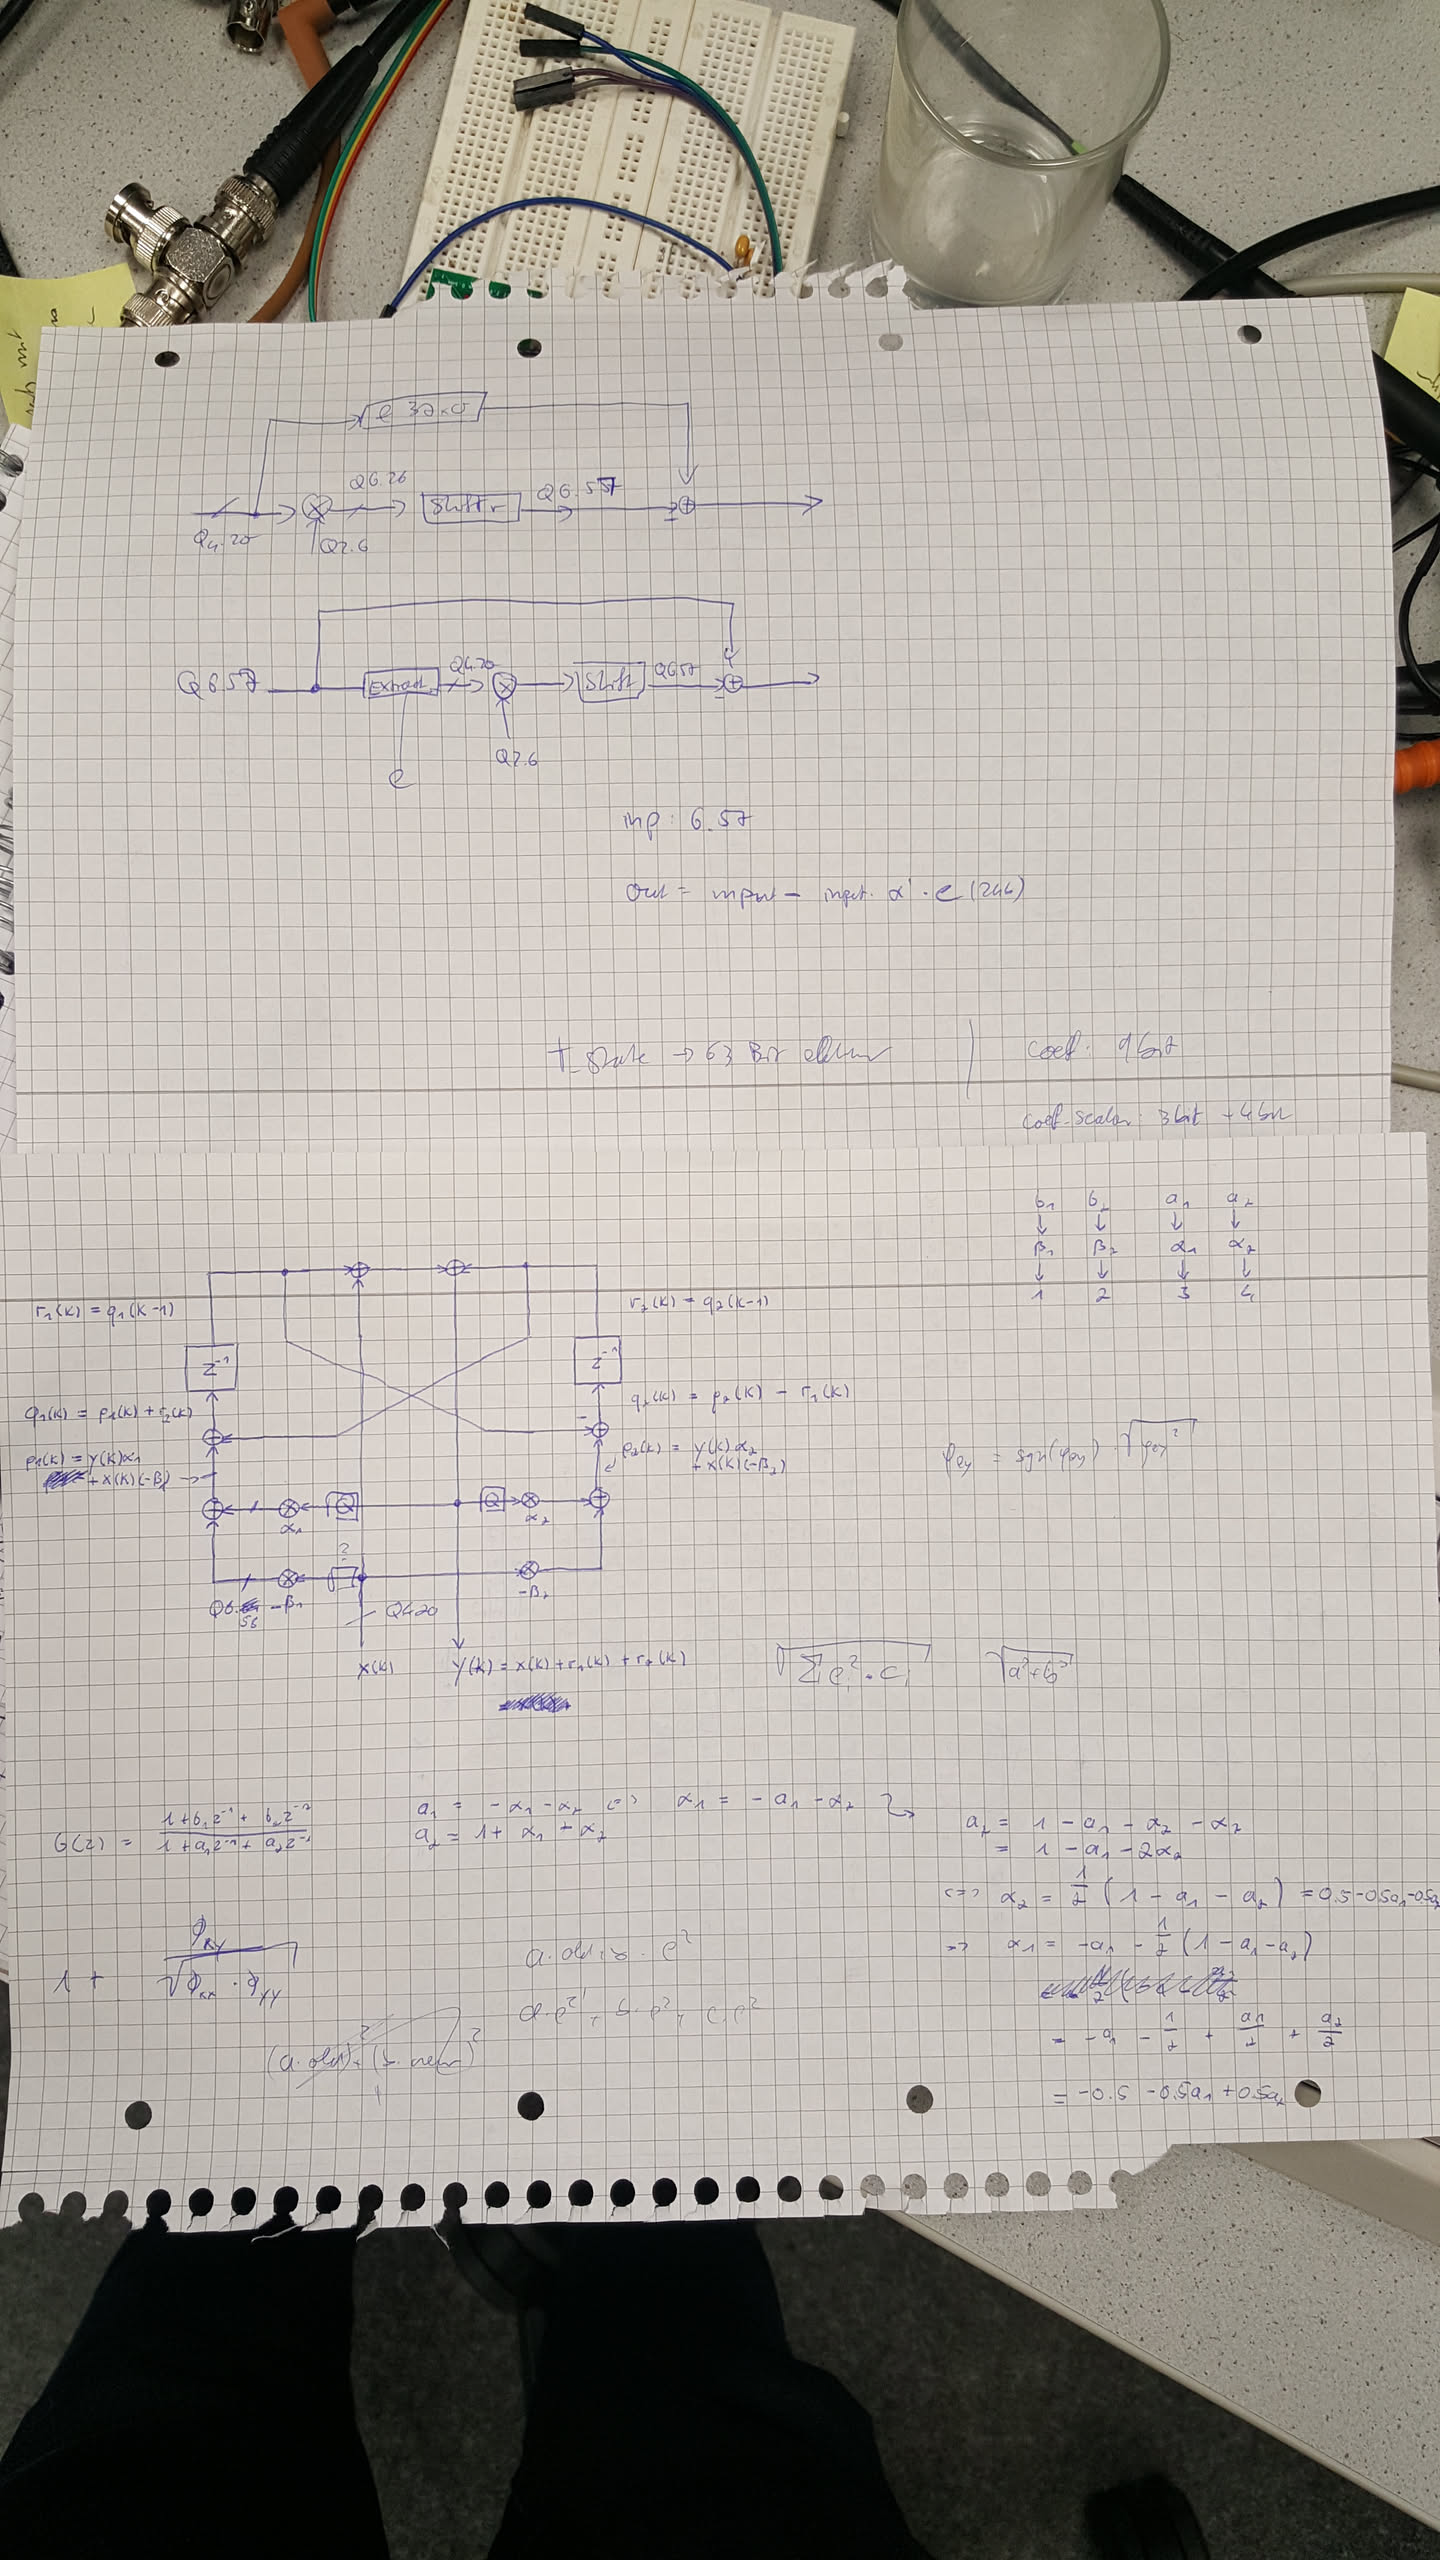 Q6.26
Q6.57
Q4.20
Q2.6
Q6.57
Extract
Q4.20
Shift
Q6.57
Q2.6
e
inp: 6.57
Out = input - input · α · e
T_State → 63 Bit
coef: 9bit
coef-scalar: 3bit → 4bit
b₁ b₂ a₁ a₂
↓ ↓ ↓ ↓
β₁ β₂ α₁ α₂
↓ ↓ ↓ ↓
1 2 3 4
r₁(k) = q₁(k-1)
r₂(k) = q₂(k-1)
z⁻¹
z⁻¹
q₁(k) = p₁(k) + r₂(k)
q₂(k) = p₂(k) - r₁(k)
p₁(k) = y(k)α₁
+ x(k)(-β₁)
p₂(k) = y(k)α₂
+ x(k)(-β₂)
φey = sgn(φey) √φey²
Q
Q
α₁
α₂
?
-β₁
-β₂
Q6.
56
Q4.20
x(k)
y(k) = x(k) + r₁(k) + r₂(k)
√a²+b²
G(z) = (1 + b₁z⁻¹ + b₂z⁻²) / (1 + a₁z⁻¹ + a₂z⁻²)
a₁ = -α₁ - α₂ <=> α₁ = -a₁ - α₂
a₂ = 1 + α₁ - α₂
a₂ = 1 - a₁ - α₂ - α₂
= 1 - a₁ - 2α₂
<=> α₂ = 1/2 (1 - a₁ - a₂) = 0.5 - 0.5a₁ - 0.5a₂
=> α₁ = -a₁ - 1/2 (1 - a₁ - a₂)
= -a₁ - 1/2 + a₁/2 + a₂/2
= -0.5 - 0.5a₁ + 0.5a₂
1 + φxy / √φxx · φyy